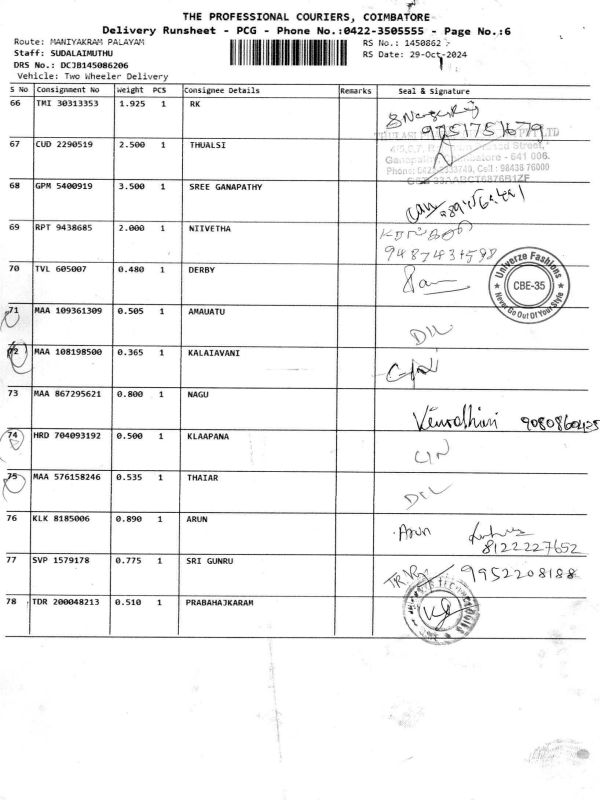 THE PROFESSIONAL COURIERS, COIMBATORE
Delivery Runsheet - PCG - Phone No.:0422-3505555 - Page No.:6
Route: MANIYAKRAM PALAYAM RS No.: 1450862
Staff: SUDALAIMUTHU RS Date: 29-Oct-2024
DRS No.: DCJB145086206
Vehicle: Two Wheeler Delivery
S No Consignment No Weight PCS Consignee Details Remarks Seal & Signature
66 TMI 30313353 1.925 1 RK
9751751679
67 CUD 2290519 2.500 1 THUALSI
PVT LTD
641 006.
68 GPM 5400919 3.500 1 SREE GANAPATHY
69 RPT 9438685 2.000 1 NIIVETHA
70 TVL 605007 0.480 1 DERBY
Univerze Fashions
CBE-35
Never Go Out Of Your Style
71 MAA 109361309 0.505 1 AMAUATU
DIL
72 MAA 108198500 0.365 1 KALAIAVANI
73 MAA 867295621 0.800 1 NAGU
74 HRD 704093192 0.500 1 KLAAPANA
75 MAA 576158246 0.535 1 THAIAR
DIL
76 KLK 8185006 0.890 1 ARUN
Arun
8122227652
77 SVP 1579178 0.775 1 SRI GUNRU
9952208188
78 TDR 200048213 0.510 1 PRABAHAJKARAM